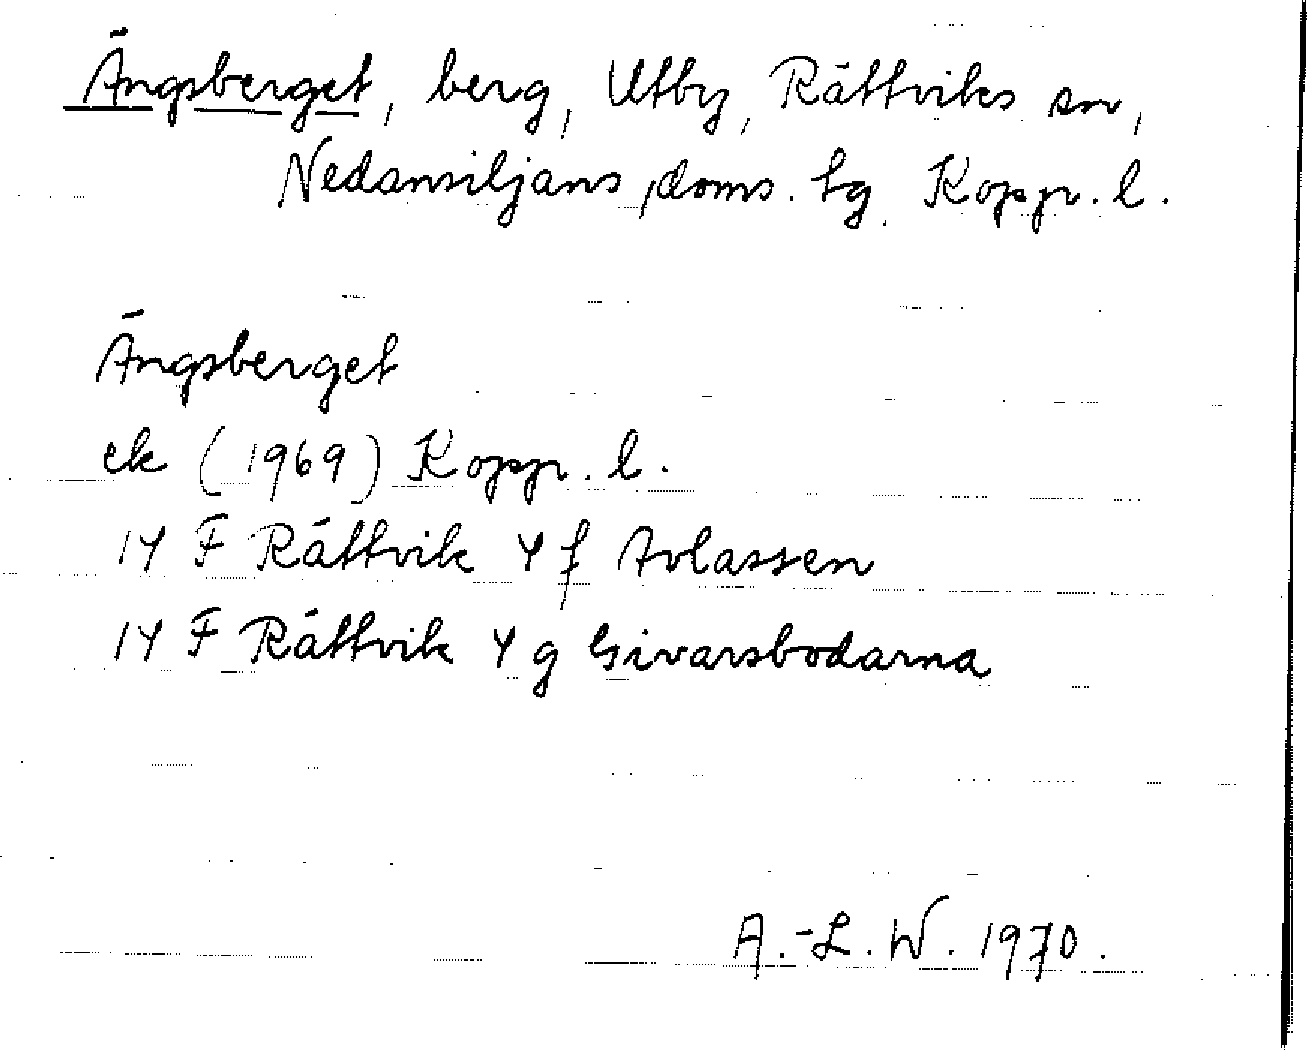 Ängsberget, berg, Utby, Rättviks sn,
Nedansiljans doms. tg. Koppr. l.
Ängsberget
ek (1969) Koppr. l.
14 F Rättvik 4 f Avlassen
14 F Rättvik 4 g Givarsbodarna
A.-L. W. 1970.